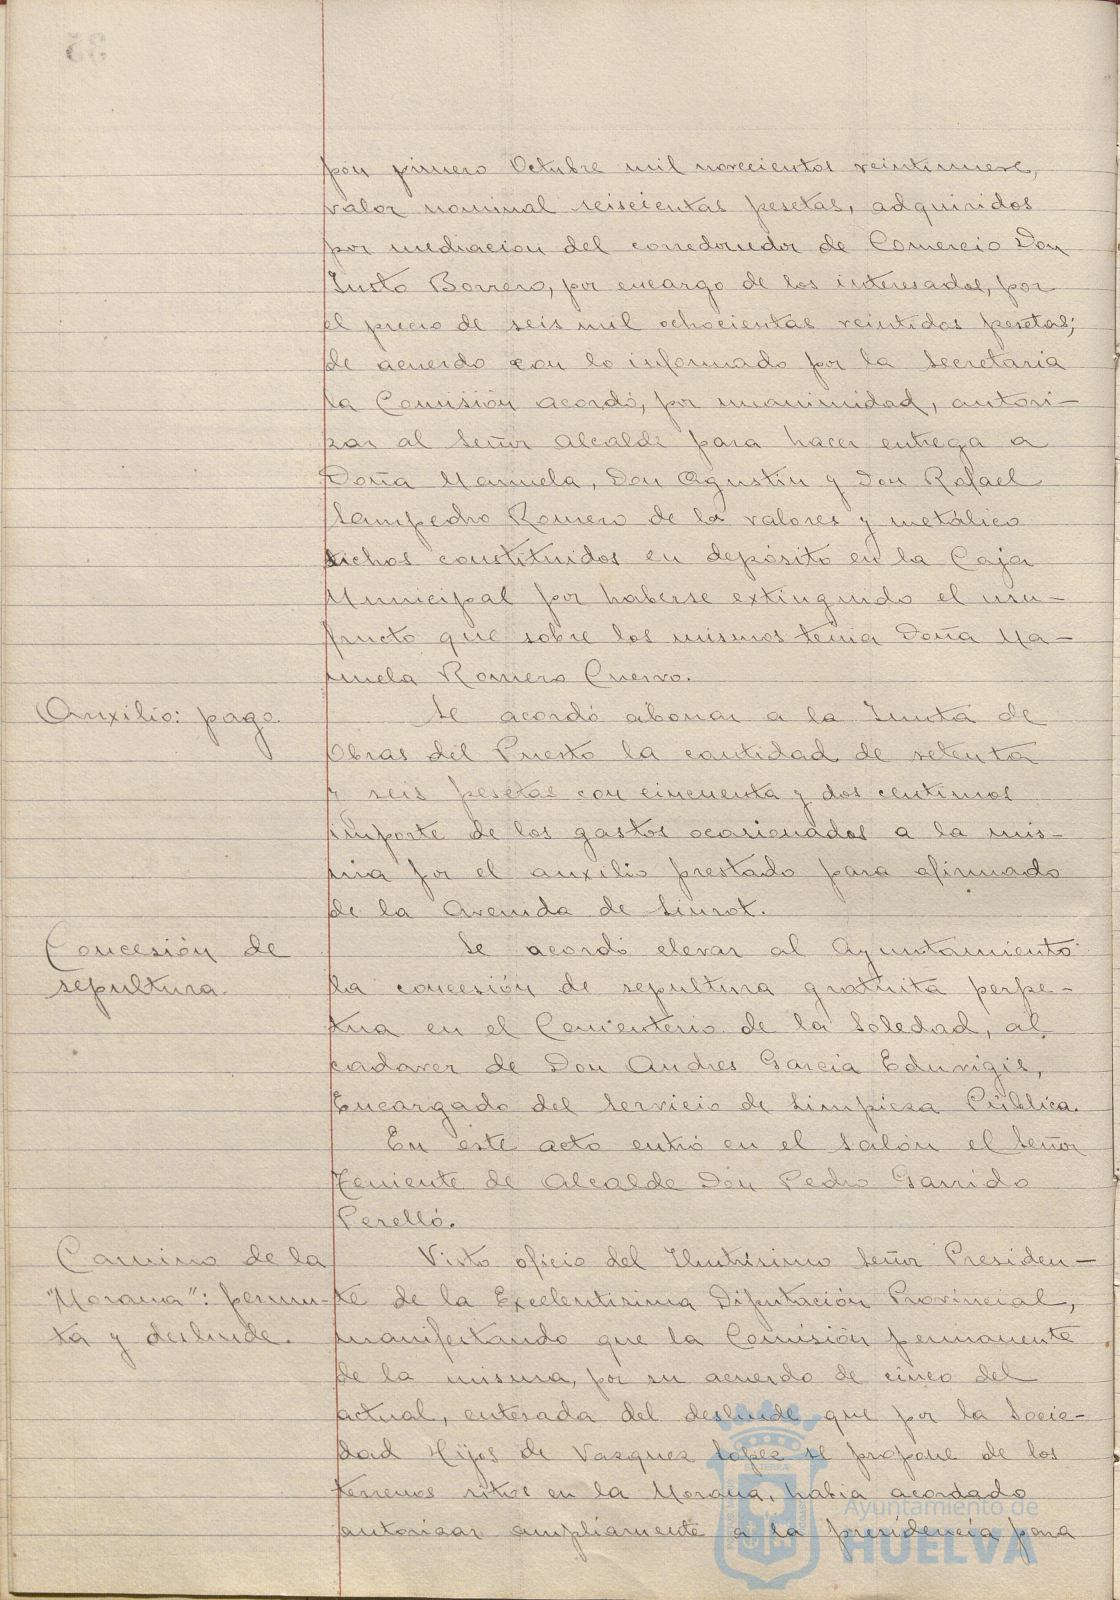 pon primero Octubre mil novecientos veintinueve,
valor nominal seiscientas pesetas, adquiridos
por mediacion del corredor de Comercio Don
Justo Borrero, por encargo de los interesados, por
el precio de seis mil ochocientas veintidos pesetas;
de acuerdo con lo informado por la Secretaria
la Comisión acordó, por unanimidad, autori-
zar al Señor Alcalde para hacer entrega a
Doña Manuela, Don Agustín y Don Rafael
Sampedro Romero de los valores y metálico
dichos constituidos en depósito en la Caja
Municipal por haberse extinguido el usu-
fructo que sobre los mismos tenia Doña Ma-
nuela Romero Cuervo.
Auxilio: pago.
Se acordó abonar a la Junta de
Obras del Puerto la cantidad de setenta
y seis pesetas con cincuenta y dos centimos
importe de los gastos ocasionados a la mis-
ma por el auxilio prestado para afirmado
de la Avenida de Siurot.
Concesión de
sepultura.
Se acordó elevar al Ayuntamiento
la concesión de sepultura gratuita perpe-
tua en el Cementerio de la Soledad, al
cadaver de Don Andres Garcia Eduvigis,
Encargado del Servicio de Limpieza Pública.
En este acto entró en el salón el Señor
Teniente de Alcalde Don Pedro Garrido
Perelló.
Camino de la
"Morana": permu-
ta y deslinde.
Visto oficio del Ilustrisimo Señor Presiden-
te de la Excelentisima Diputación Provincial,
manifestando que la Comisión permanente
de la misma, por su acuerdo de cinco del
actual, enterada del deslinde que por la Socie-
dad Hijos de Vazquez Lopez se propone de los
terrenos sitos en la Morana, habia acordado
autorizar ampliamente a la presidencia para
Ayuntamiento de
HUELVA